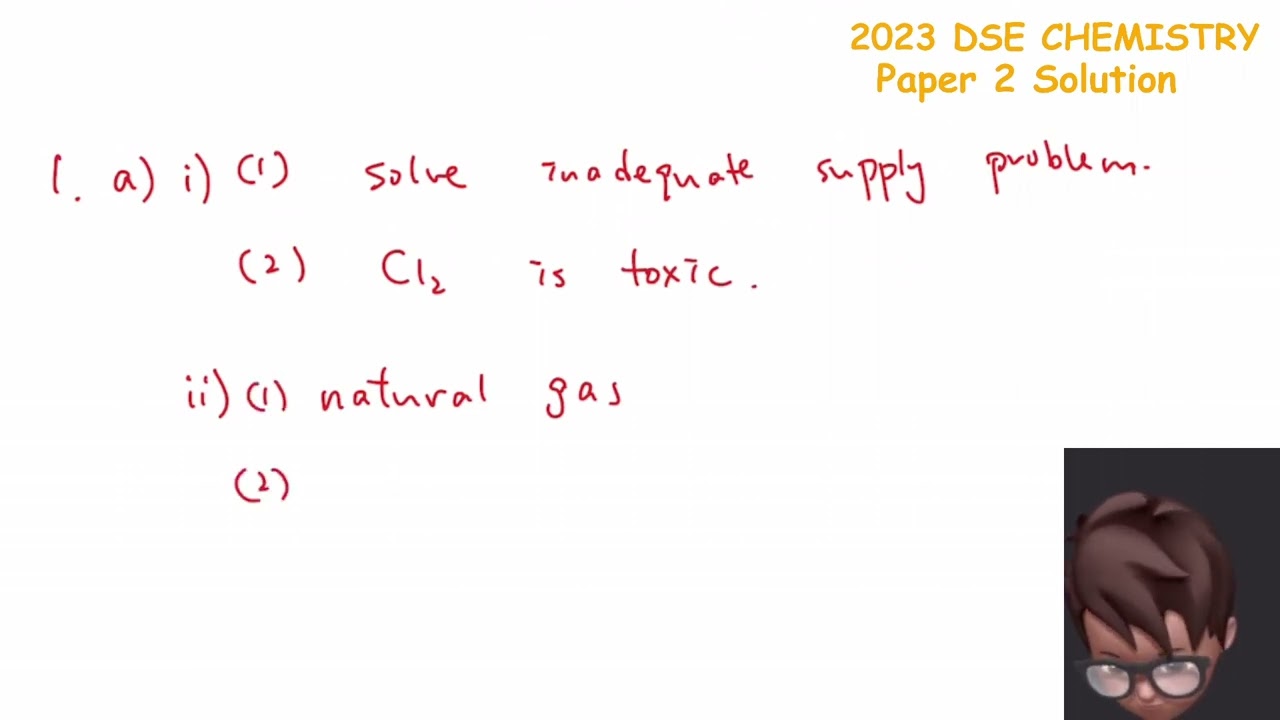 2023 DSE CHEMISTRY
Paper 2 Solution
1. a) i) (1) solve inadequate supply problem.
(2) Cl₂ is toxic.
ii) (1) natural gas
(2)